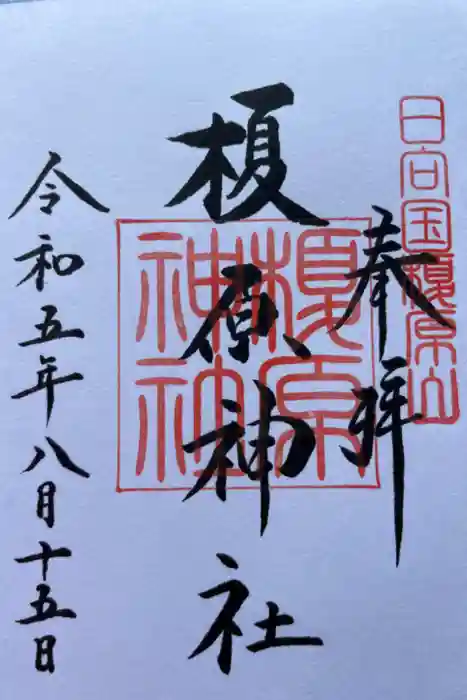 日向国榎原山
奉拝
榎原神社
榎原
神社
令和五年八月十五日